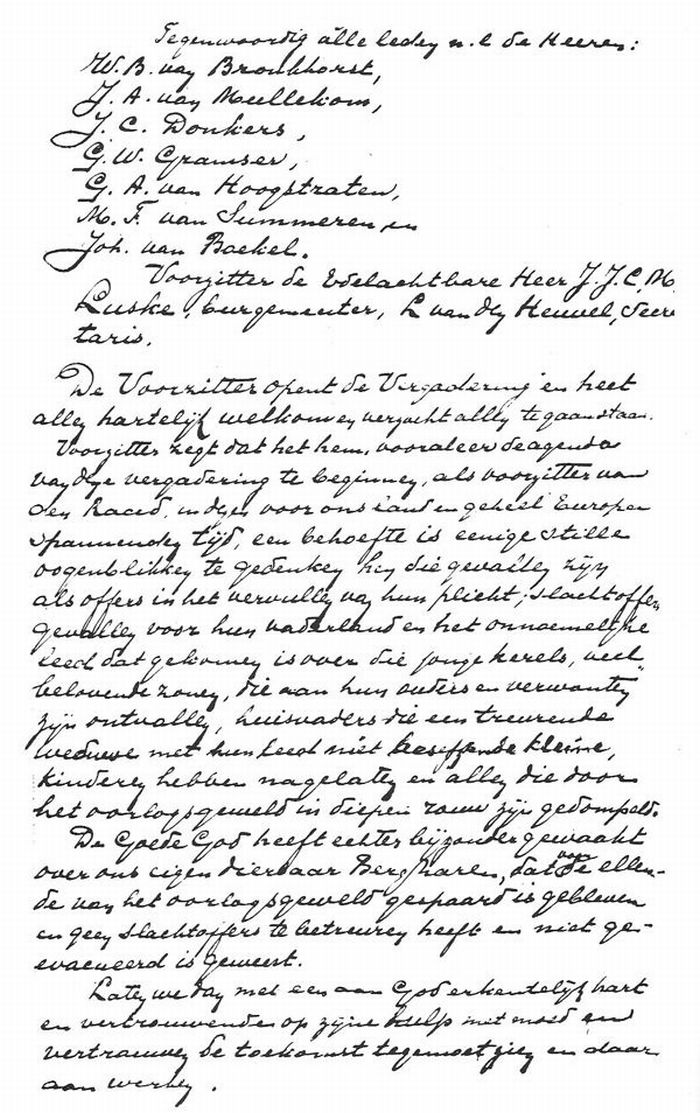 Tegenwoordig alle leden n.l de Heeren:
W. B. van Bronkhorst,
J. A. van Meullekom,
J. C. Donkers,
G. W. Gramser,
G. A. van Hoogstraten,
M. F. van Summeren, en
Joh. van Boekel.
Voorzitter de Edelachtbare Heer J. J. C. M.
Luske, burgemeester, L van den Heuvel, Secre
taris.
De Voorzitter opent de Vergadering en heet
allen hartelijk welkom en verzocht allen te gaan staan.
Voorzitter zegt dat het hem, vooraleer de agenda
van deze vergadering te beginnen, als voorzitter van
den Raad, in dezen voor ons land en geheel Europa
spannenden tijd, een behoefte is eenige stille
oogenblikken te gedenken hen die gevallen zijn
als offers in het vervullen van hun plicht; slachtoffers
gevallen voor hun vaderland en het onnoemelijke
leed dat gekomen is over die jonge kerels, veel-
belovende zonen, die aan hun ouders en verwanten
zijn ontvallen, huisvaders die een treurende
weduwe met hun leed niet beseffende kleine,
kinderen hebben nagelaten en allen die door
het oorlogsgeweld in diepen rouw zijn gedompeld.
De Goede God heeft echter bijzonder gewaakt
over ons eigen dierbaar Bergharen, dat van de ellen-
de van het oorlogsgeweld gespaard is gebleven
en geen slachtoffers te betreuren heeft en niet ge-
evacueerd is geweest.
Laten we dan met een aan God erkentelijk hart
en vertrouwende op zijne hulp met moed en
vertrouwen de toekomst tegemoet zien en daar
aan werken.